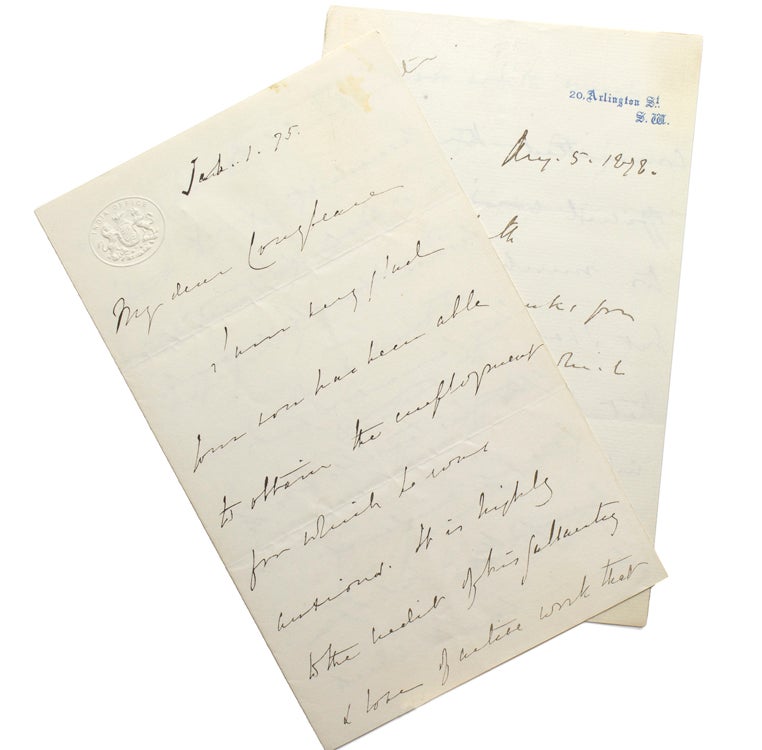 INDIA OFFICE
Jan. 1. 75.
My dear
I am very glad
your son has been able
to obtain the employment
for which he was
anxious. It is highly
to the credit of his gallantry
& love of active work that
20, Arlington St.
S.W.
5. 1878.
th
for
which